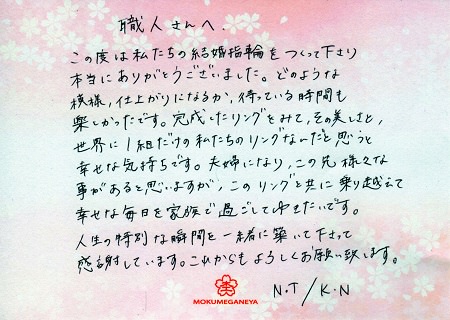 職人さんへ.
この度は私たちの結婚指輪をつくって下さり
本当にありがとうございました。どのような
模様,仕上がりになるか,待っている時間も
楽しかったです。完成したリングをみて,その美しさと,
世界に1組だけの私たちのリングなんだと思うと
幸せな気持ちです。夫婦になり,この先様々な
事があると思いますが,このリングと共に乗り越えて
幸せな毎日を家族で過ごしてゆきたいです。
人生の特別な瞬間を一緒に築いて下さって
感謝しています。これからもよろしくお願い致します。
N・T/K・N
MOKUMEGANEYA